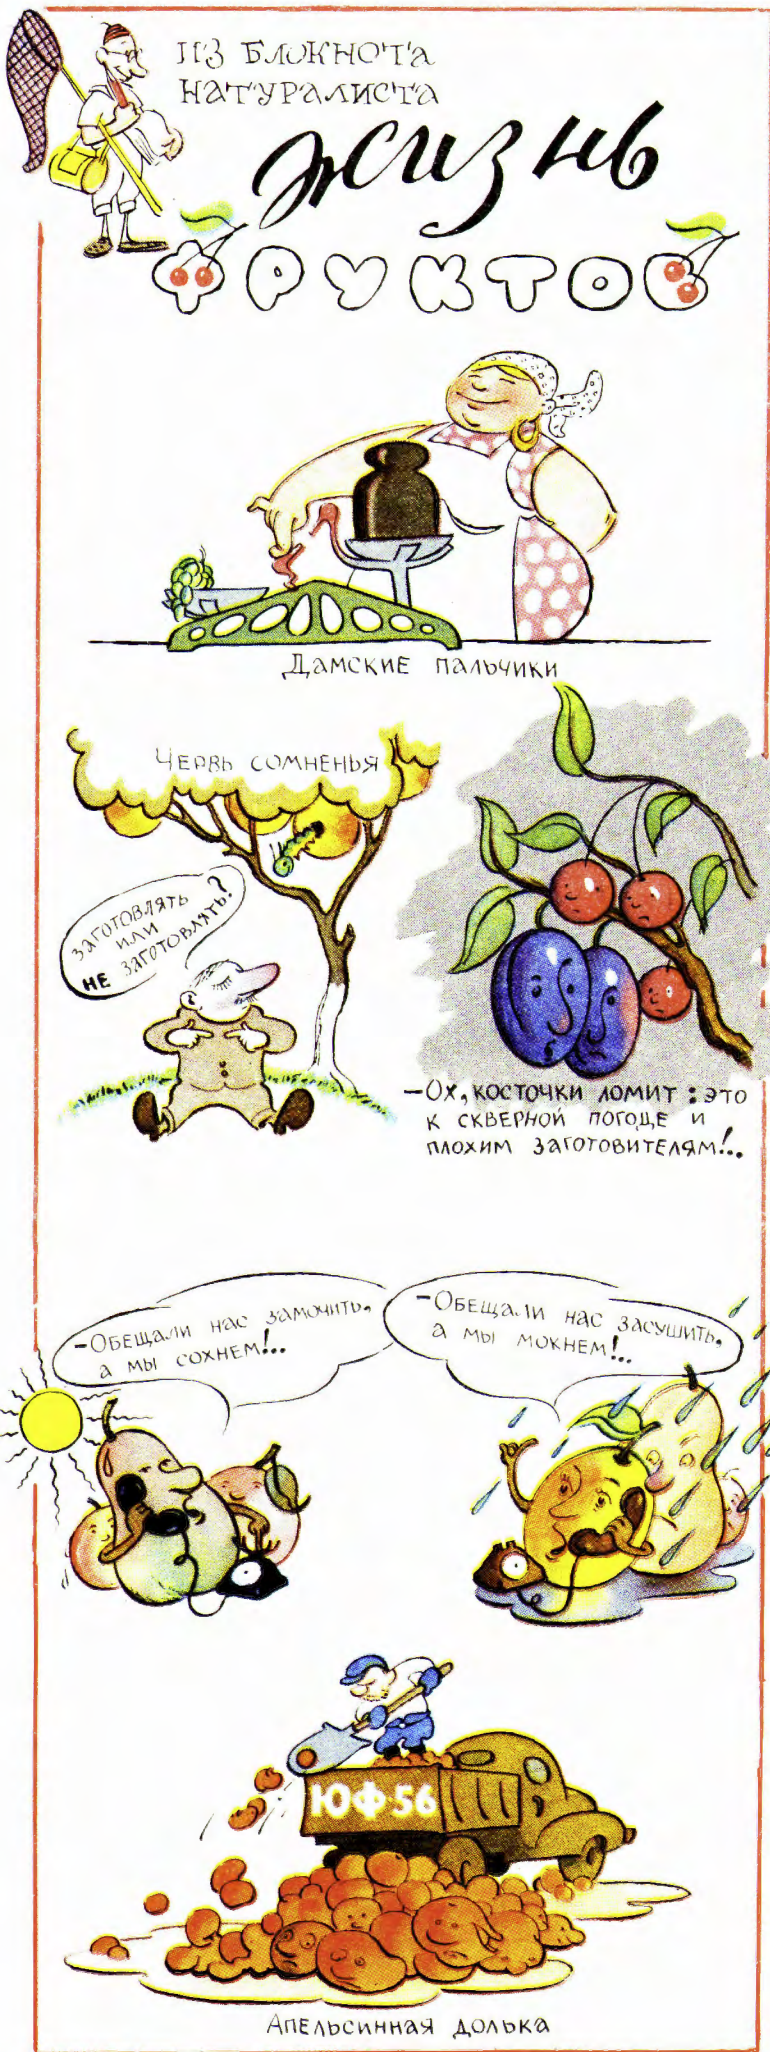 ИЗ БЛОКНОТА
НАТУРАЛИСТА
жизнь
ФРУКТОВ
ДАМСКИЕ ПАЛЬЧИКИ
ЧЕРВЬ СОМНЕНЬЯ
ЗАГОТОВЛЯТЬ
ИЛИ
НЕ ЗАГОТОВЛЯТЬ?
—ОХ, КОСТОЧКИ ЛОМИТ: ЭТО
К СКВЕРНОЙ ПОГОДЕ И
ПЛОХИМ ЗАГОТОВИТЕЛЯМ!..
—ОБЕЩАЛИ НАС ЗАМОЧИТЬ,
А МЫ СОХНЕМ!..
—ОБЕЩАЛИ НАС ЗАСУШИТЬ,
А МЫ МОКНЕМ!..
ЮФ 56
АПЕЛЬСИННАЯ ДОЛЬКА